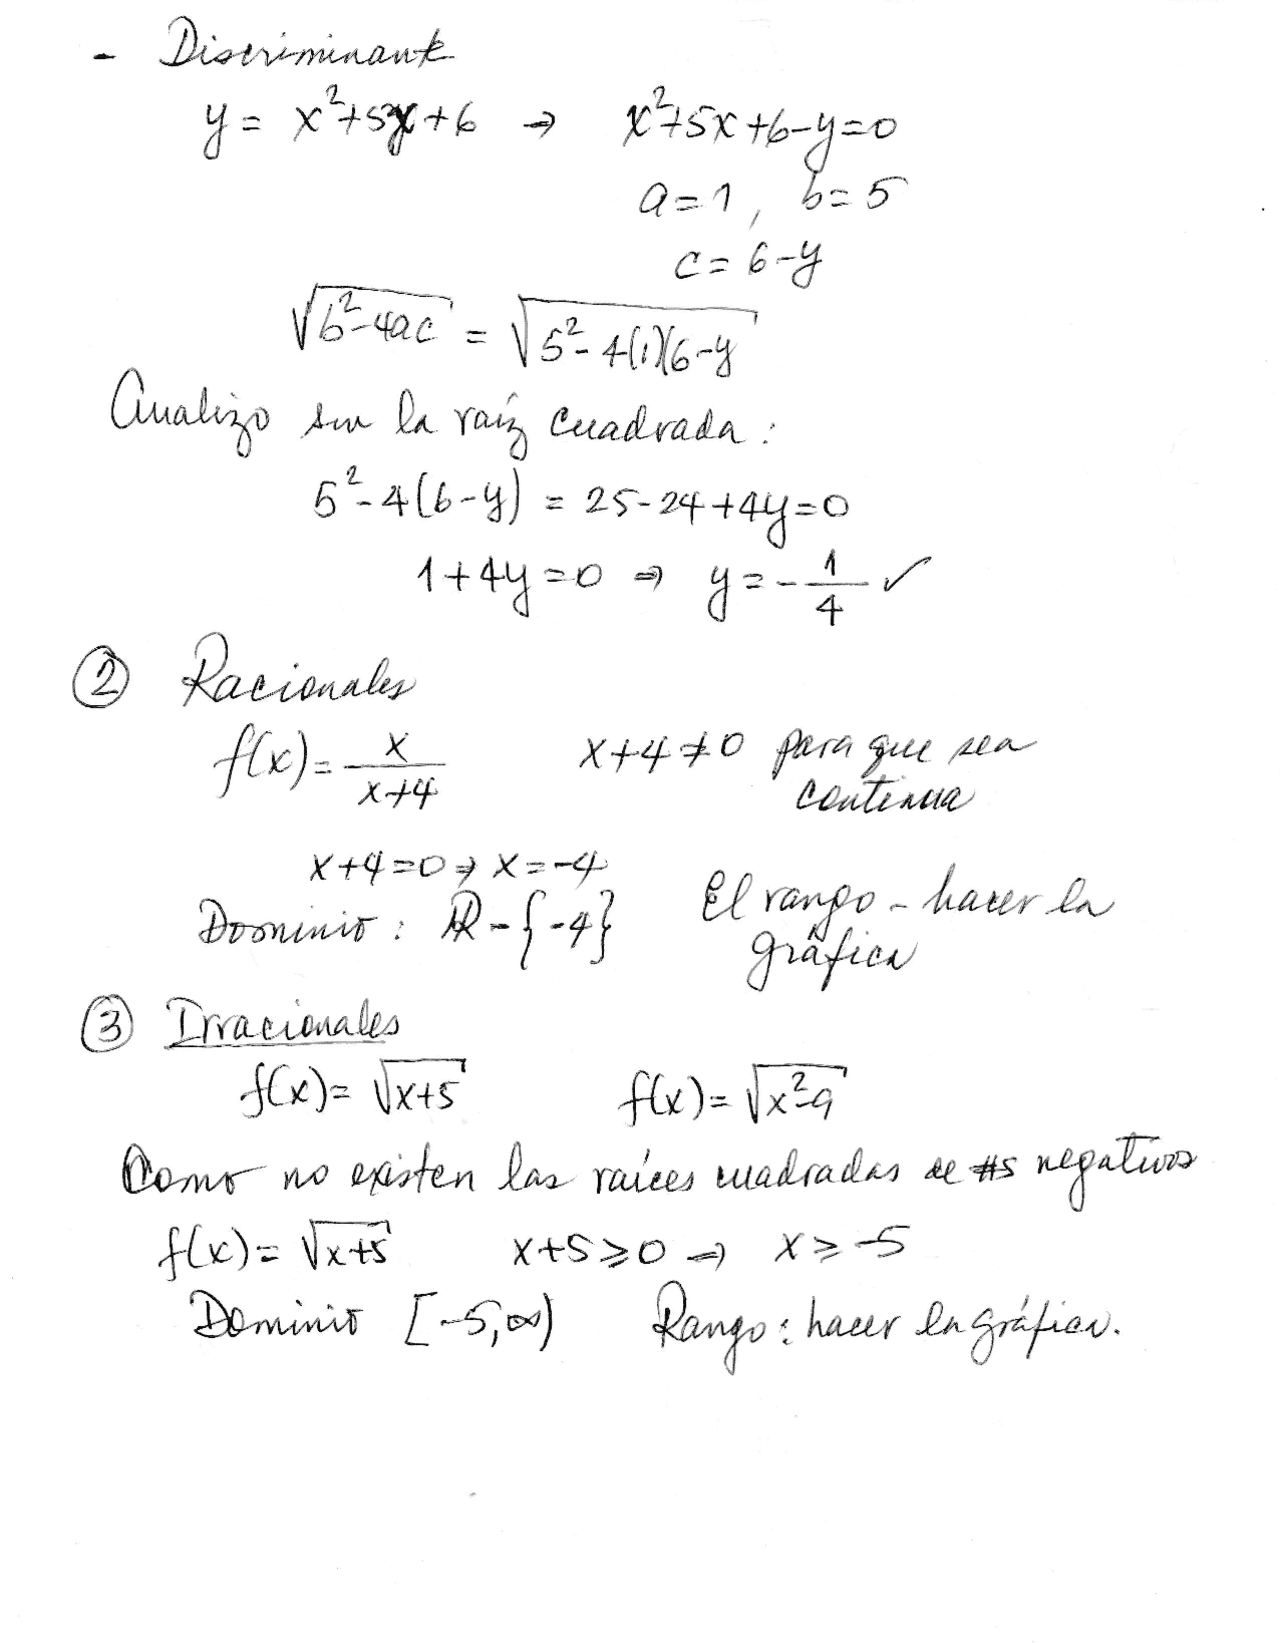 - Discriminante
y = x²+5x+6 → x²+5x+6-y=0
a=1, b=5
c=6-y
√(b²-4ac) = √(5²-4(1)(6-y)
Analizo sin la raíz cuadrada:
5²-4(6-y) = 25-24+4y=0
1+4y=0 ⇒ y=-1/4 ✓
② Racionales
f(x)= x/(x+4) x+4≠0 para que sea
continua
x+4=0 ⇒ x=-4
Dominio: ℝ-{-4} El rango - hacer la
gráfica
③ Irracionales
f(x)=√(x+5) f(x)=√(x²-9)
Como no existen las raíces cuadradas de #s negativos
f(x)=√(x+5) x+5≥0 ⇒ x≥-5
Dominio [-5,∞) Rango: hacer la gráfica.